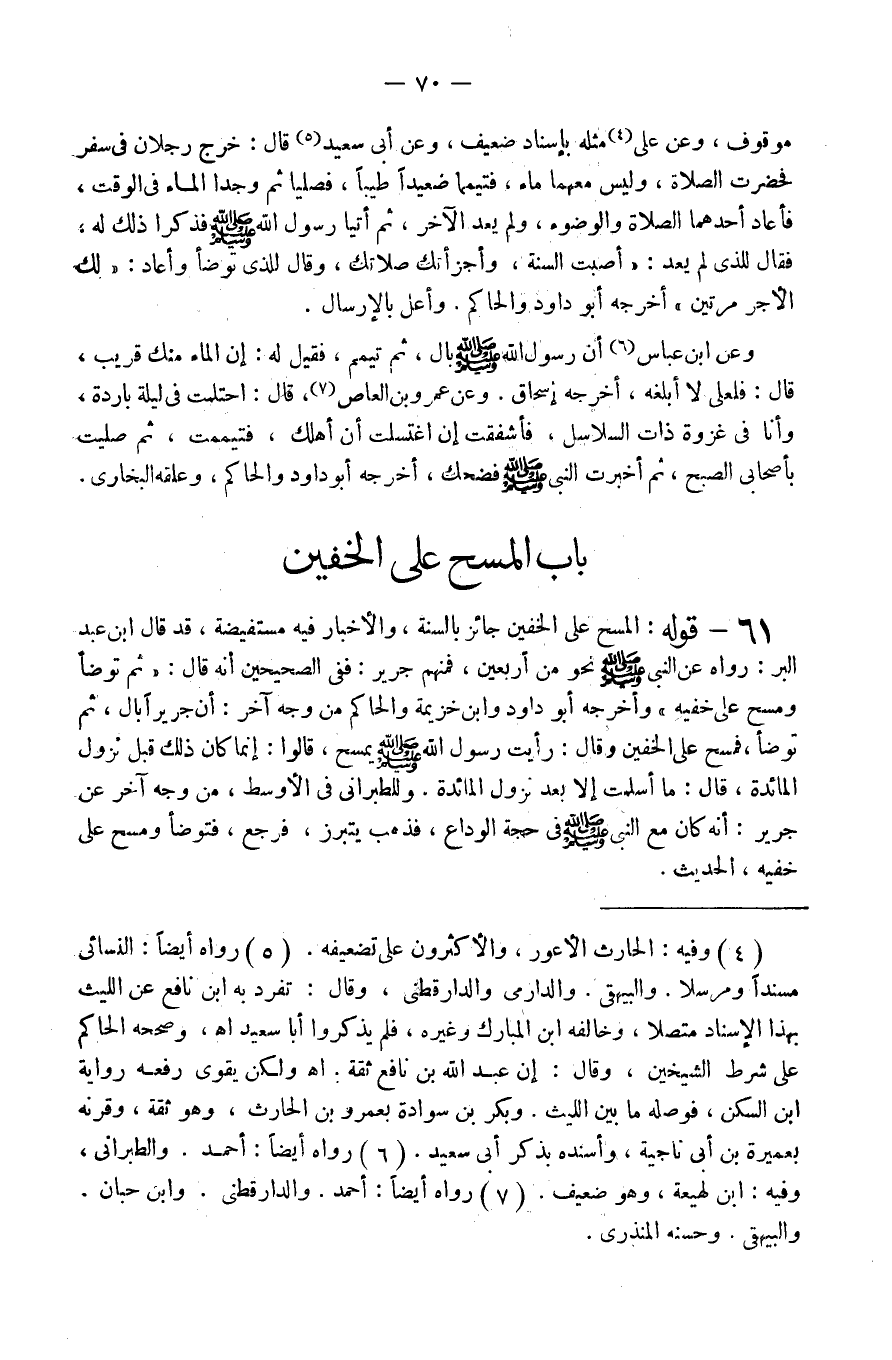 — ٧٠ —
موقوف ، وعن على(٤) مثله بإسناد ضعيف ، وعن أبى سعيد(٥) قال : خرج رجلان فى سفر
فحضرت الصلاة ، وليس معهما ماء ، فتيمما ضعيداً طيباً ، فصليا ثم وجدا المـاء فى الوقت ،
فأعاد أحدهما الصلاة والوضوء ، ولم يعد الآخر ، ثم أتيا رسول الله ﷺ فذكرا ذلك له ؛
فقال للذى لم يعد : « أصبت السنة ، وأجزأتك صلاتك ، وقال للذى توضأ وأعاد : « لك
الأجر مرتين » أخرجه أبو داود والحاكم . وأعل بالإرسال .
وعن ابن عباس(٦) أن رسول الله ﷺ بال ، ثم تيمم ، فقيل له : إن الماء منك قريب ،
قال : فلعلى لا أبلغه ، أخرجه إسحاق . وعن عمرو بن العاص(٧)، قال : احتلمت فى ليلة باردة ،
وأنا فى غزوة ذات السلاسل ، فأشفقت إن اغتسلت أن أهلك ، فتيممت ، ثم صليت
بأصحابى الصبح ، ثم أخبرت النبى ﷺ فضحك ، أخرجه أبو داود والحاكم ، وعلقه البخارى .
باب المسح على الخفين
٦١ – قوله : المسح على الخفين جائز بالسنة ، والأخبار فيه مستفيضة ، قد قال ابن عبد
البر : رواه عن النبى ﷺ نحو من أربعين ، فمنهم جرير : ففى الصحيحين أنه قال : « ثم توضأ
ومسح على خفيه » وأخرجه أبو داود وابن خزيمة والحاكم من وجه آخر : أن جريراً بال ، ثم
توضأ ، فمسح على الخفين وقال : رأيت رسول الله ﷺ يمسح ، قالوا : إنما كان ذلك قبل نزول
المائدة ، قال : ما أسلمت إلا بعد نزول المائدة . وللطبرانى فى الأوسط ، من وجه آخر عن
جرير : أنه كان مع النبى ﷺ فى حجة الوداع ، فذهب يتبرز ، فرجع ، فتوضأ ومسح على
خفيه ، الحديث .
( ٤ ) وفيه : الحارث الأعور ، والأكثرون على تضعيفه . ( ٥ ) رواه أيضاً : النسائى
مسنداً ومرسلا . والبيهقى . والدارمى والدارقطنى ، وقال : تفرد به ابن نافع عن الليث
بهذا الإسناد متصلا ، وخالفه ابن المبارك وغيره ، فلم يذكروا أبا سعيد اه ، وصححه الحاكم
على شرط الشيخين ، وقال : إن عبـد الله بن نافع ثقة . اه ولكن يقوى رفعـه رواية
ابن السكن ، فوصله ما بين الليث . وبكر بن سوادة بعمرو بن الحارث ، وهو ثقة ، وقرنه
بعميرة بن أبى ناجية ، وأسنده بذكر أبى سعيد . ( ٦ ) رواه أيضاً : أحمـد . والطبرانى ،
وفيه : ابن لهيعة ، وهو ضعيف . ( ٧ ) رواه أيضاً : أحمد . والدارقطنى . وابن حبان .
والبيهقى . وحسنه المنذرى .